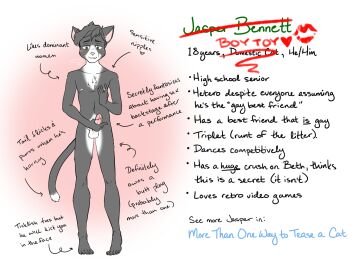 Jasper Bennett
BOY TOY
18 years, Domestic Cat, He/Him
Likes dominant
women
Sensitive
nipples
Secretly fantasizes
about having sex
backstage after
a performance
Tail flicks &
purrs when he's
horny
Definitely
owns a
butt plug
(probably
more than one)
Ticklish toes but
he will kick you
in the face
• High school senior
• Hetero despite everyone assuming
he's the "gay best friend"
• Has a best friend that is gay
• Triplet (runt of the litter)
• Dances competitively
• Has a huge crush on Beth, thinks
this is a secret (it isn't)
• Loves retro video games
See more Jasper in:
More Than One Way to Tease a Cat